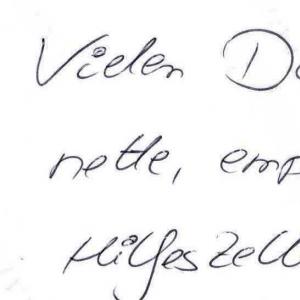 Vielen Da
nette, emp
Hilfeszell